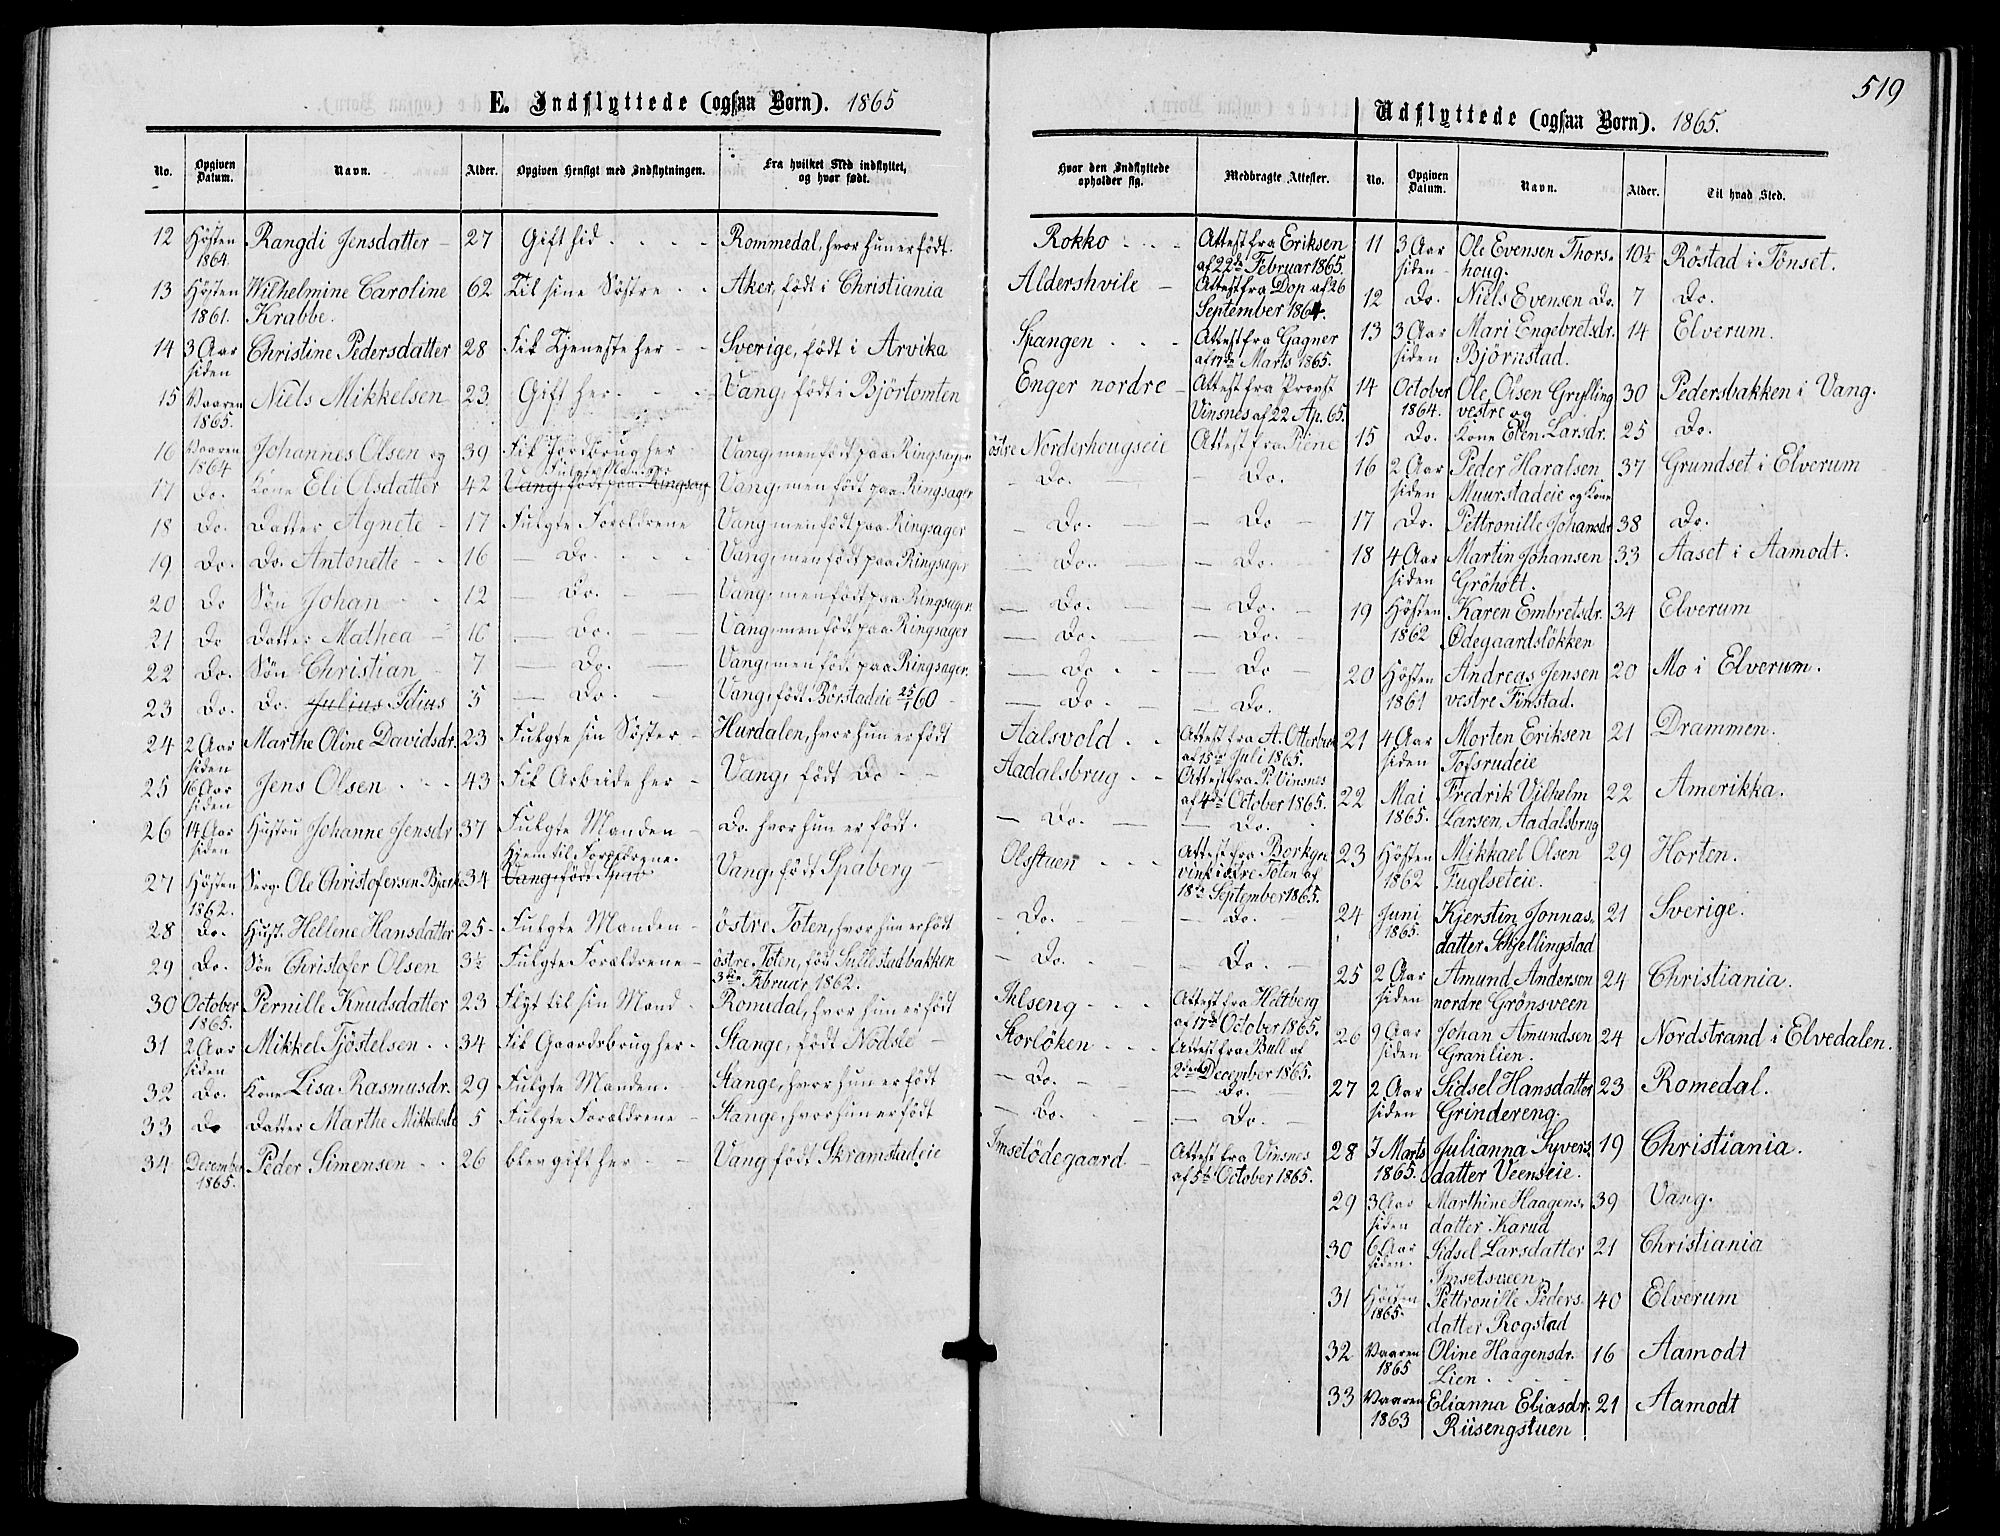 519
E. Indflyttede (ogsaa Børn). 1865
No. Opgiven Datum. Navn. Alder. Opgiven Hensigt med Indflytningen. Fra hvilket Sted indflyttet, og hvor født. Hvor den Indflyttede opholder sig. Medbragte Attester.
12 Hösten 1864. Rangdi Jensdatter 27 Gift hid Rommedal, hvor hun er född. Rokko Attest fra Eriksen af 22de Februar 1865.
13 Hösten 1861. Wilhelmine Caroline Krabbe. 62 Til sine Söstre Aker, född i Christiania Aldershvile Attest fra Dop af 26 September 1864.
14 3 Aar siden Christine Pedersdatter 28 Fik Tjeneste her Sverige, född i Arvika Spangen Attest fra Gagner af Marts 1865.
15 Vaaren 1865. Niels Mikkelsen 23 Gift her Vang, född i Björtomten Enger nordre Attest fra Provst Vinsnes af 22 Ap. 65.
16 Vaaren 1864 Johannes Olsen og 39 Fik Jordbrug her Vang, men född paa Ringsager östre Norderhougseie Attest fra Piene
17 Do. Kone Eli Olsdatter 42 Fulgte Manden Vang, men född paa Ringsager Do. Do.
18 Do. Datter Agnete 17 Fulgte Forældrene Vang men född paa Ringsager Do. Do
19 Do. Do. Antonette 16 Do. Vang, men född paa Ringsager Do. Do.
20 Do Sön Johan 12 Do. Vang, men född paa Ringsager. Do. Do.
21 Do Datter Mathea 10 Do. Vang, men född paa Ringsager Do. Do.
22 Do. Sön Christian 7 Do. Vang, men född paa Ringsager. Do. Do
23 Do. Do. Julius Idius 5 Do. Vang, född i Börstadeie 25/1 60 Do. Do.
24 2 Aar siden Marthe Oline Davidsdr. 23 Fulgte sin Söster Hurdalen, hvor hun er född Aalsvold Attest fra A. Otterbech af 15de Juli 1865.
25 16 Aar siden Jens Olsen 43 Fik Arbeide her Vang, född Do Aadalsbrug Attest fra P. Vinsnes af 4de October 1865.
26 14 Aar siden Hustru Johanne Jensdr 37 Fulgte Manden Do. hvor hun er född. Do. Do.
27 Hösten 1862. Serg. Ole Christofersen Bjerke 34 Hjem til Forældrene. Vang, född Spaberg Olsstuen Attest fra Borkgrevink i östre Toten af 18de September 1865.
28 Do. Hust. Hellene Hansdatter 25 Fulgte Manden östre Toten, hvor hun er född Do. Do.
29 Do. Sön Christofer Olsen 3½ Fulgte Forældrene östre Toten, född Sullestadbakken 3die Februar 1862. Do. Do.
30 October 1865. Pernille Knudsdatter 23 Flyt til sin Mand Romedal, hvor hun er född Ihlseng Attest fra Heltberg af 17de October 1865.
31 2 Aar siden Mikkel Tjöstelsen 34 Fik Gaardsbrug her Stange, född Nodsle Storlöken Attest fra Bull af 2den December 1865.
32 Do. Kone Lisa Rasmusdr. 29 Fulgte Manden. Stange, hvor hun er född Do. Do.
33 Do Datter Marthe Mikkelsdr 5 Fulgte Forældrene Stange, hvor hun er född Do. Do.
34 December 1865. Peder Simensen 26 blev gift her Vang född Skramstadeie Imsetödegaard Attest fra Vinsnes af 5te October 1865.
Udflyttede (ogsaa Børn). 1865.
No. Opgiven Datum. Navn. Alder. Til hvad Sted.
11 3 Aar siden Ole Evensen Thorshoug. 10½ Röstad i Tönset.
12 Do. Niels Evensen Do. 7 Do.
13 3 Aar siden Mari Engebretsdr. Björnstad. 14 Elverum.
14 October 1864. Ole Olsen Grylling vestre og 30 Pedersbakken i Vang.
15 Do. Kone Elen Larsdr. 25 Do.
16 2 Aar siden Peder Haralsen Muurstadeie og Kone 37 Grundset i Elverum
17 Do. Pettronille Johansdr 38 Do.
18 4 Aar siden Martin Johansen Gröholt. 33 Aaset i Aamodt.
19 Hösten 1862 Karen Embretsdr. Ödegaardslökken 34 Elverum
20 Hösten 1861 Andreas Jensen vestre Finstad. 20 Mo i Elverum.
21 4 Aar siden Morten Eriksen Tofsrudeie 21 Drammen.
22 Mai 1865. Fredrik Vilhelm Larsen, Aadalsbrug 22 Amerikka.
23 Hösten 1862 Mikkael Olsen Fuglseteie. 29 Horten.
24 Juni 1865. Kjerstin Jonnasdatter Schjellingstad 21 Sverige.
25 2 Aar siden Amund Andersen nordre Grönsveen 24 Christiania.
26 9 Aar siden Johan Amundsen Granlien. 24 Nordstrand i Elvedalen.
27 2 Aar siden Sidsel Hansdatter Grindereng. 23 Romedal.
28 7 Marts 1865. Julianna Syversdatter Veenseie. 19 Christiania.
29 3 Aar siden Marthine Haagensdatter Karud 39 Vang.
30 6 Aar siden. Sidsel Larsdatter Imsetsveen 21 Christiania
31 Hösten 1865. Pettronille Pedersdatter Rogstad 40 Elverum
32 Vaaren 1865 Oline Haagensdr. Lien 16 Aamodt
33 Vaaren 1863 Elianna Eliasdr. Riisengstuen 21 Aamodt